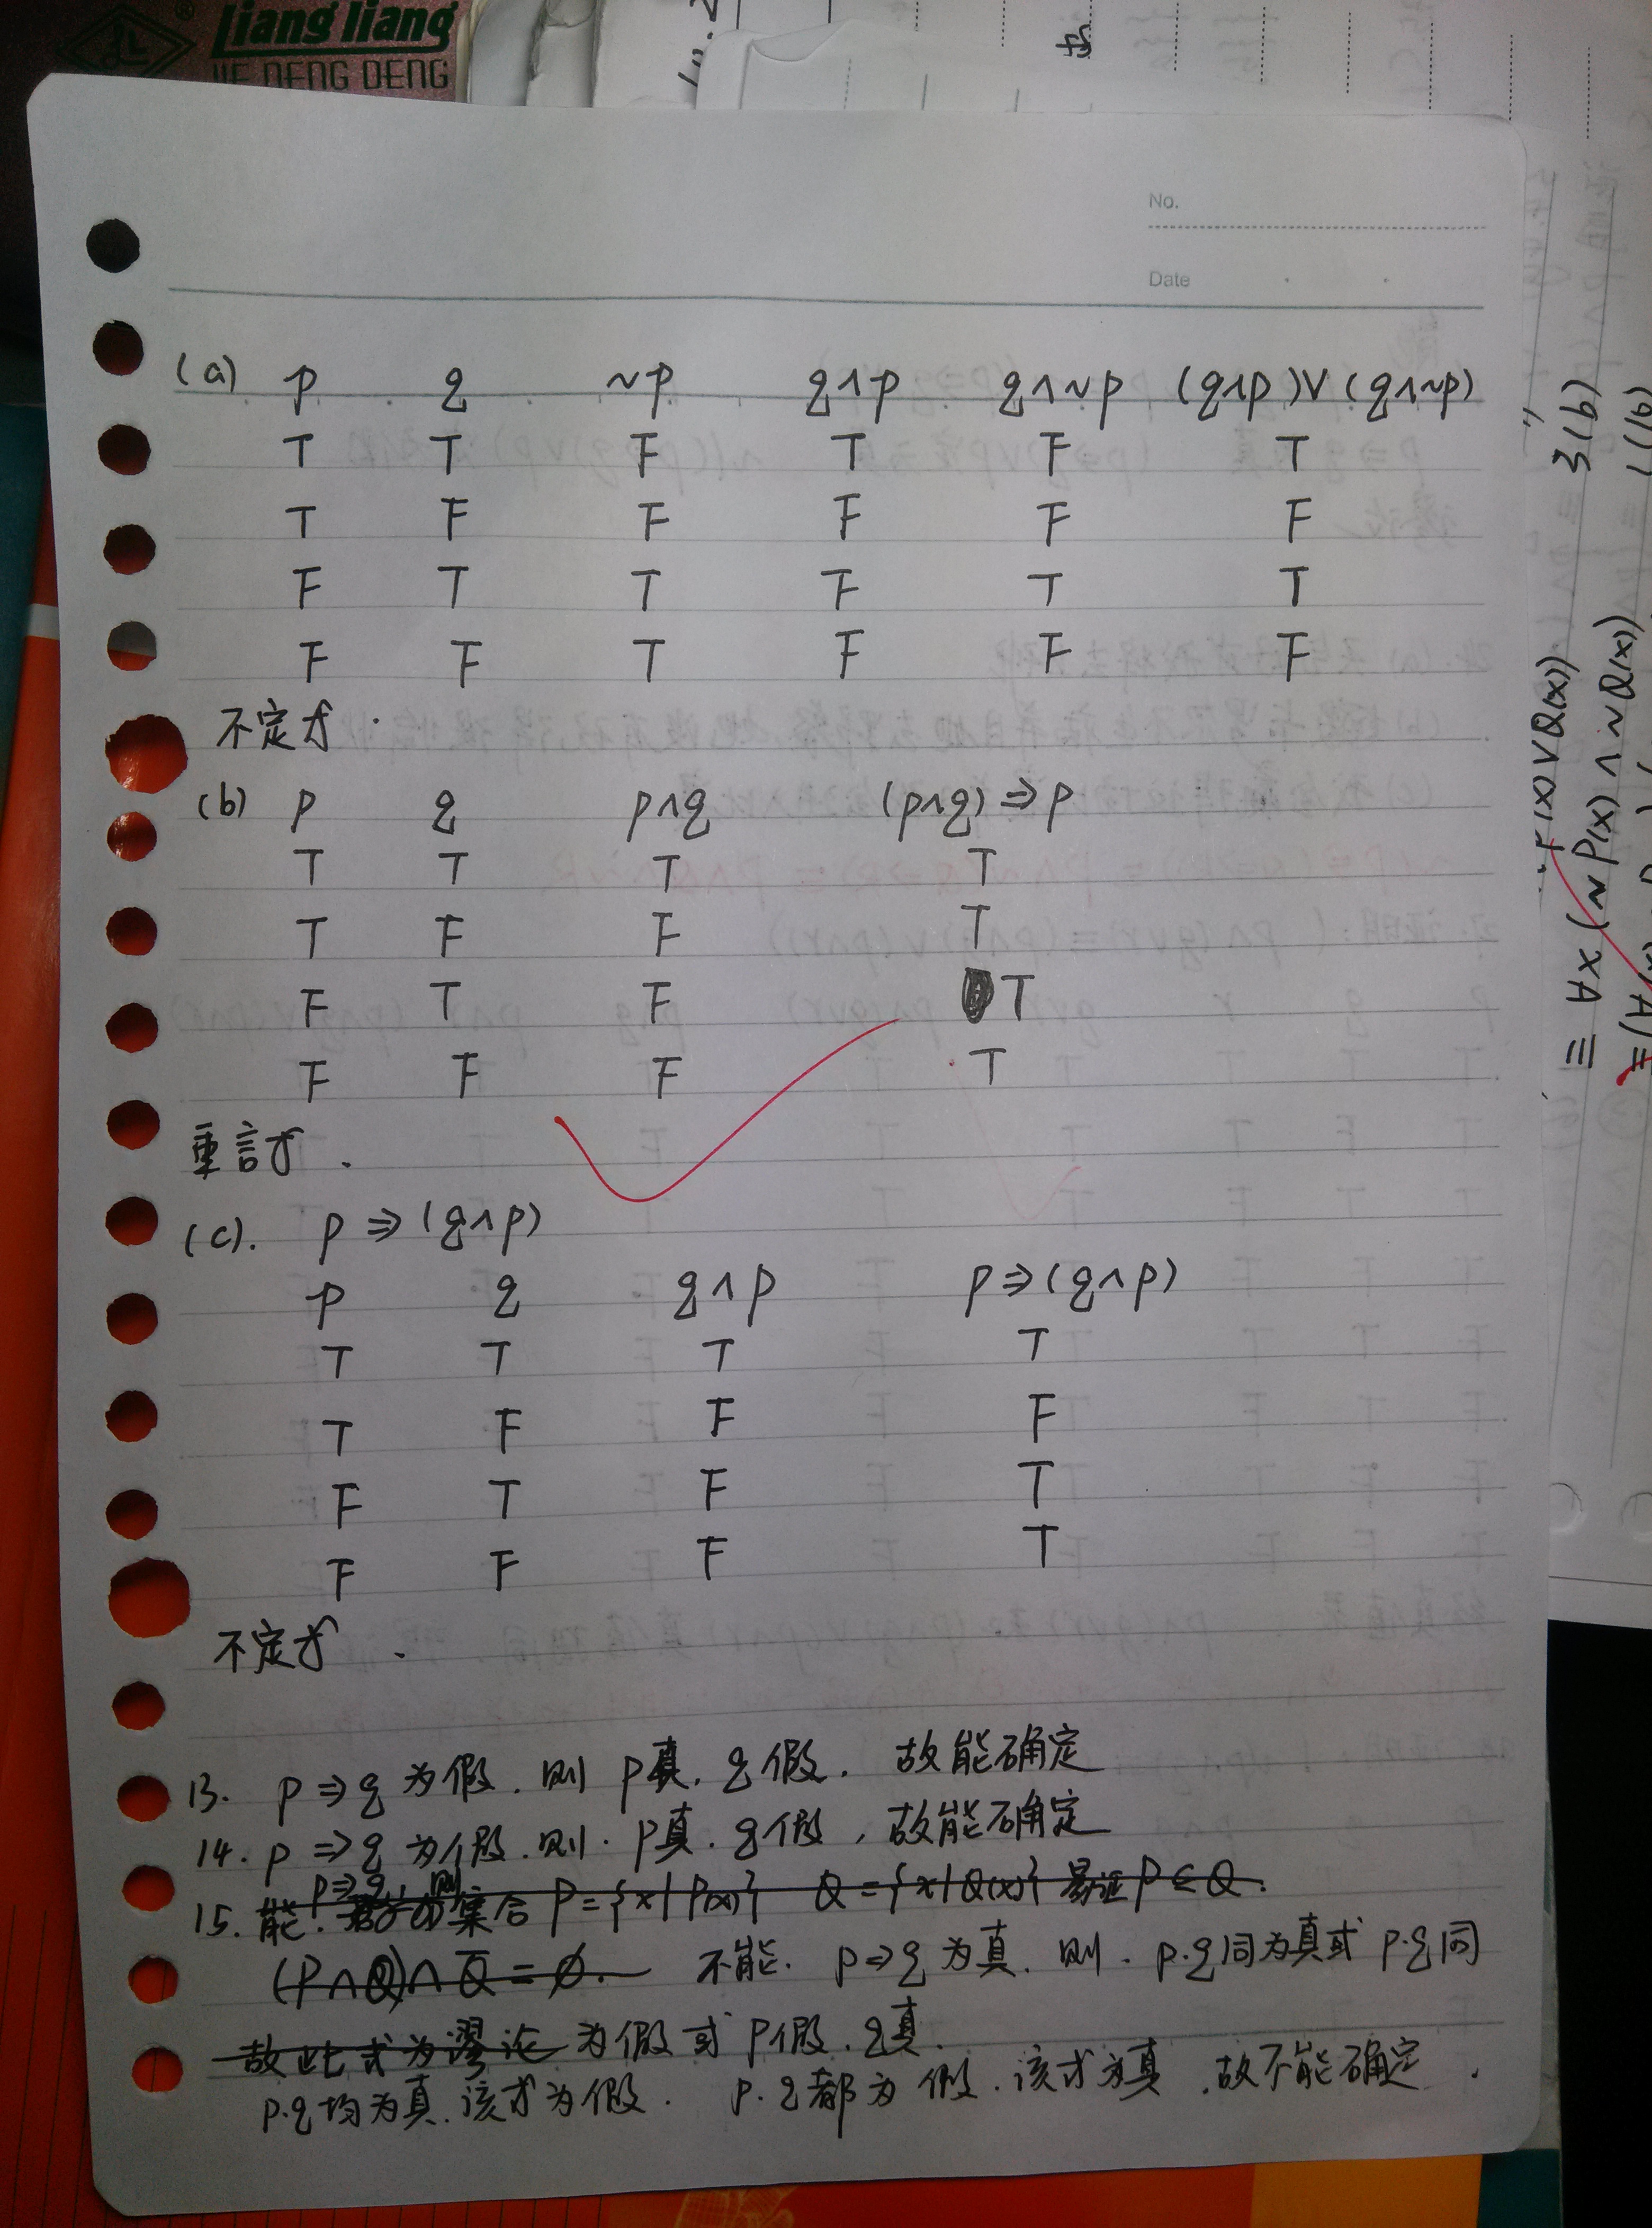 Liang liang
JIE DENG DENG
No.
Date
(a) p q ~p q∧p q∧~p (q∧p)∨(q∧~p)
T T F T F T
T F F F F F
F T T F T T
F F T F F F
不定式.
(b) p q p∧q (p∧q)⇒p
T T T T
T F F T
F T F T
F F F T
重言式.
(c). p⇒(q∧p)
p q q∧p p⇒(q∧p)
T T T T
T F F F
F T F T
F F F T
不定式.
13. p⇒q为假.则p真.q假.故能确定
14. p⇒q为假.则.p真.q假,故能确定
p⇒q,则
15. 能.集合P={x|P(x)} Q={x|Q(x)}易证P⊆Q.
(P∧Q)∧Q̅=∅. 不能.p⇒q为真.则.p.q同为真或p.q同
故此式为谬论为假或p假.q真.
p.q均为真.该式为假. p.q都为假.该式为真.故不能确定.
3(b)
P(x)∨Q(x))
≡∀x(~P(x)∧~Q(x))